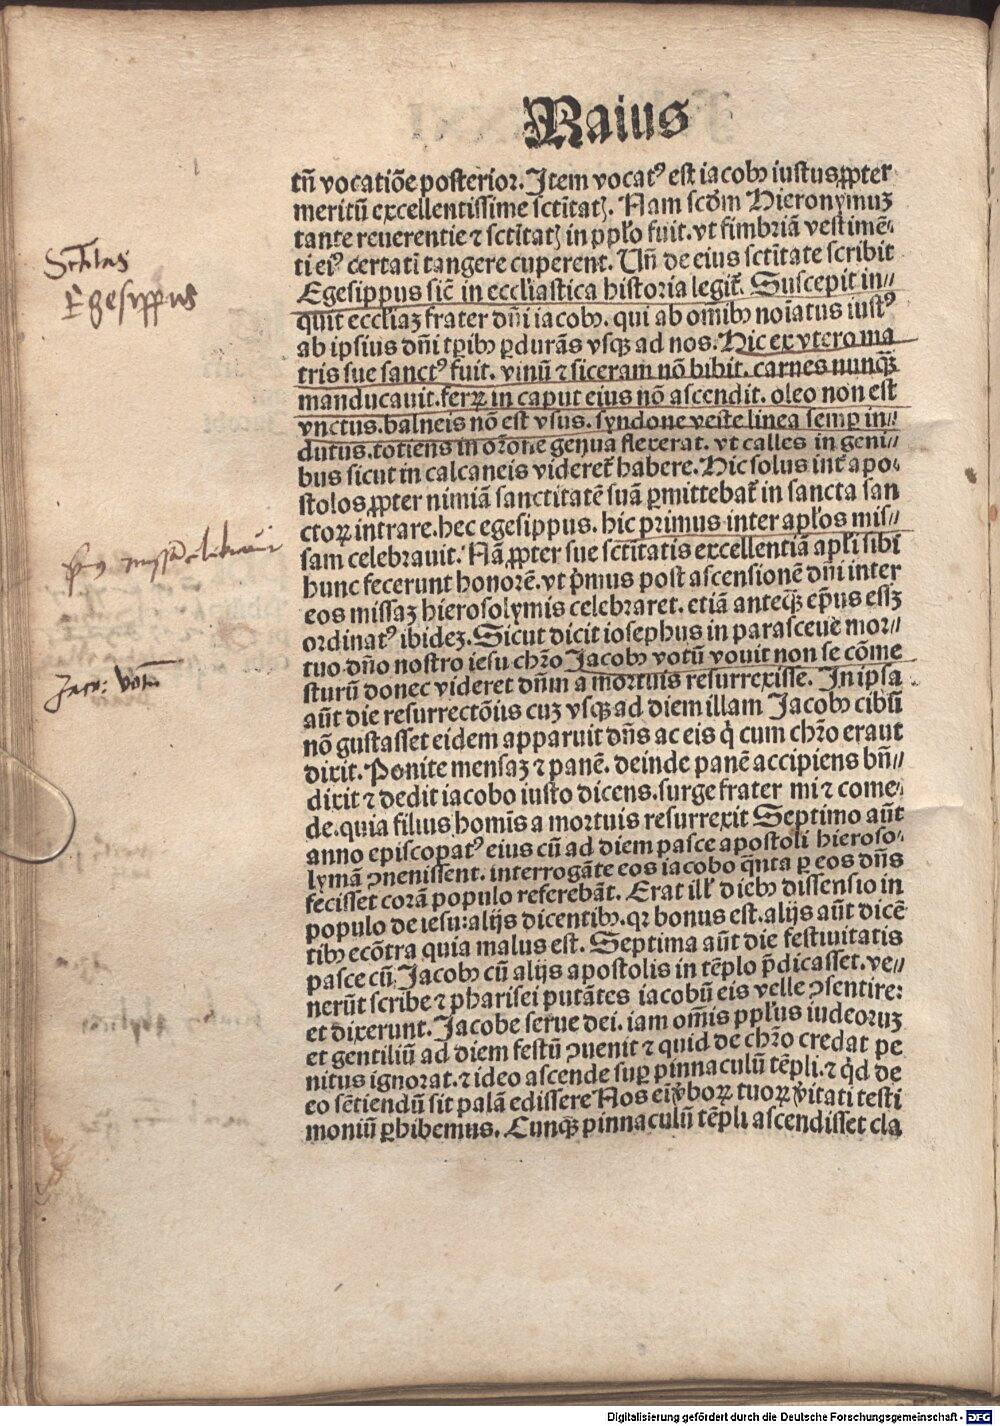 Maius
tn̄ vocatiōe posterior. Item vocatꝰ est iacobꝰ iustus ꝓpter
meritū excellentissime sctītatꝭ. Nam scd̄m Hieronymuꝫ
tante reuerentie ⁊ sctītatꝭ in ppl̄o fuit. vt fimbriā vestimē⸗
ti eiꝰ certati tangere cuperent. Un̄ de eius sctītate scribit
Egesippus sic̄ in eccl̄iastica historia legit᷑. Suscepit in//
quit eccl̄iaꝫ frater dn̄i iacobꝰ. qui ab oīmbꝰ noīatus iustꝰ
ab ipsius dn̄i tp̄ibꝰ ꝑdurās vsqꝫ ad nos. Hic ex vtero ma
tris sue sanctꝰ fuit. vinū ⁊ siceram nō bibit. carnes nunqꝫ̄
manducauit. ferꝝ in caput eius nō ascendit. oleo non est
vnctus. balneis nō est vsus. syndone veste linea semꝑ in//
dutus. totiens in or̄one genua flexerat. vt calles in geni//
bus sicut in calcaneis videret᷑ habere. Hic solus int̄ apo⸗
stolos ꝓpter nimiā sanctitatē suā ꝑmittebat᷑ in sancta san
ctoꝝ intrare. hec egesippus. hic primus inter apl̄os mis//
sam celebrauit. Nā ꝓpter sue sctītatis excellentiā apl̄i sibi
hunc fecerunt honorē. vt p̄mus post ascensionē dn̄i inter
eos missaꝫ hierosolymis celebraret. etiā anteqꝫ̄ ep̄us essꝫ
ordinatꝰ ibideꝫ. Sicut dicit iosephus in parasceue mor//
tuo dn̄o nostro iesu chr̄o Jacobꝰ votū vouit non se cōme
sturū donec videret dn̄m a mortuis resurrexisse. In ipsa
aūt die resurrectōis cuꝫ vsqꝫ ad diem illam Jacobꝰ cibū
nō gustasset eidem apparuit dn̄s ac eis q̇ cum chr̄o eraut
dixit. Ponite mensaꝫ ⁊ panē. deinde panē accipiens bn̄//
dixit ⁊ dedit iacobo iusto dicens. surge frater mi ⁊ come⸗
de. quia filius homīs a mortuis resurrexit Septimo aūt
anno episcopatꝰ eius cū ad diem pasce apostoli hieroso⸗
lymā ꝯnenissent. interrogāte eos iacobo q̄nta ꝑ eos dn̄s
fecisset corā populo referebāt. Erat ill̄ diebꝰ dissensio in
populo de iesu: alijs dicentibꝰ. qꝛ bonus est. alijs aūt dicē
tibꝰ ecōtra quia malus est. Septima aūt die festiuitatis
pasce cū Jacobꝰ cū alijs apostolis in tēplo p̄dicasset. ve//
nerūt scribe ⁊ pharisei putātes iacobū eis velle ꝯsentire:
et dixerunt. Jacobe serue dei. iam om̄is ppl̄us iudeoruꝫ
et gentiliū ad diem festū ꝯuenit ⁊ quid de chr̄o credat pe
nitus ignorat. ⁊ ideo ascende suꝑ pinnaculū tēpli. ⁊ q̇d de
eo sētiendū sit palā edissere Nos ei̅ v̄boꝝ tuoꝝ v̄itati testi
moniū ꝑhibemus. Cunqꝫ pinnaculū tēpli ascendisset cla
Egesippus
Jaco: votū
Digitalisierung gefördert durch die Deutsche Forschungsgemeinschaft - DFG